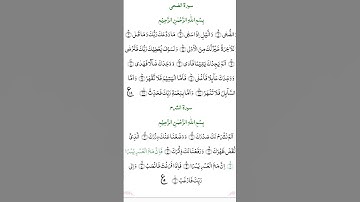 سورة الضحى
بِسْمِ اللَّهِ الرَّحْمَٰنِ الرَّحِيْمِ
وَالضُّحٰى ۝ وَالَّيْلِ اِذَا سَجٰى ۝ مَا وَدَّعَكَ رَبُّكَ وَمَا قَلٰى ۝ وَ
لَلْاٰخِرَةُ خَيْرٌ لَّكَ مِنَ الْاُوْلٰى ۝ وَلَسَوْفَ يُعْطِيْكَ رَبُّكَ فَتَرْضٰى ۝
اَلَمْ يَجِدْكَ يَتِيْمًا فَاٰوٰى ۝ وَوَجَدَكَ ضَآلًّا فَهَدٰى ۝
وَوَجَدَكَ عَآئِلًا فَاَغْنٰى ۝ فَاَمَّا الْيَتِيْمَ فَلَا تَقْهَرْ ۝ وَاَمَّا
السَّآئِلَ فَلَا تَنْهَرْ ۝ وَاَمَّا بِنِعْمَةِ رَبِّكَ فَحَدِّثْ ۝ ع
سورة الشرح
بِسْمِ اللَّهِ الرَّحْمَٰنِ الرَّحِيْمِ
اَلَمْ نَشْرَحْ لَكَ صَدْرَكَ ۝ وَوَضَعْنَا عَنْكَ وِزْرَكَ ۝ الَّذِيْٓ
اَنْقَضَ ظَهْرَكَ ۝ وَرَفَعْنَا لَكَ ذِكْرَكَ ۝ فَاِنَّ مَعَ الْعُسْرِ يُسْرًا ۝
اِنَّ مَعَ الْعُسْرِ يُسْرًا ۝ فَاِذَا فَرَغْتَ فَانْصَبْ ۝ وَاِلٰى
رَبِّكَ فَارْغَبْ ۝ ع